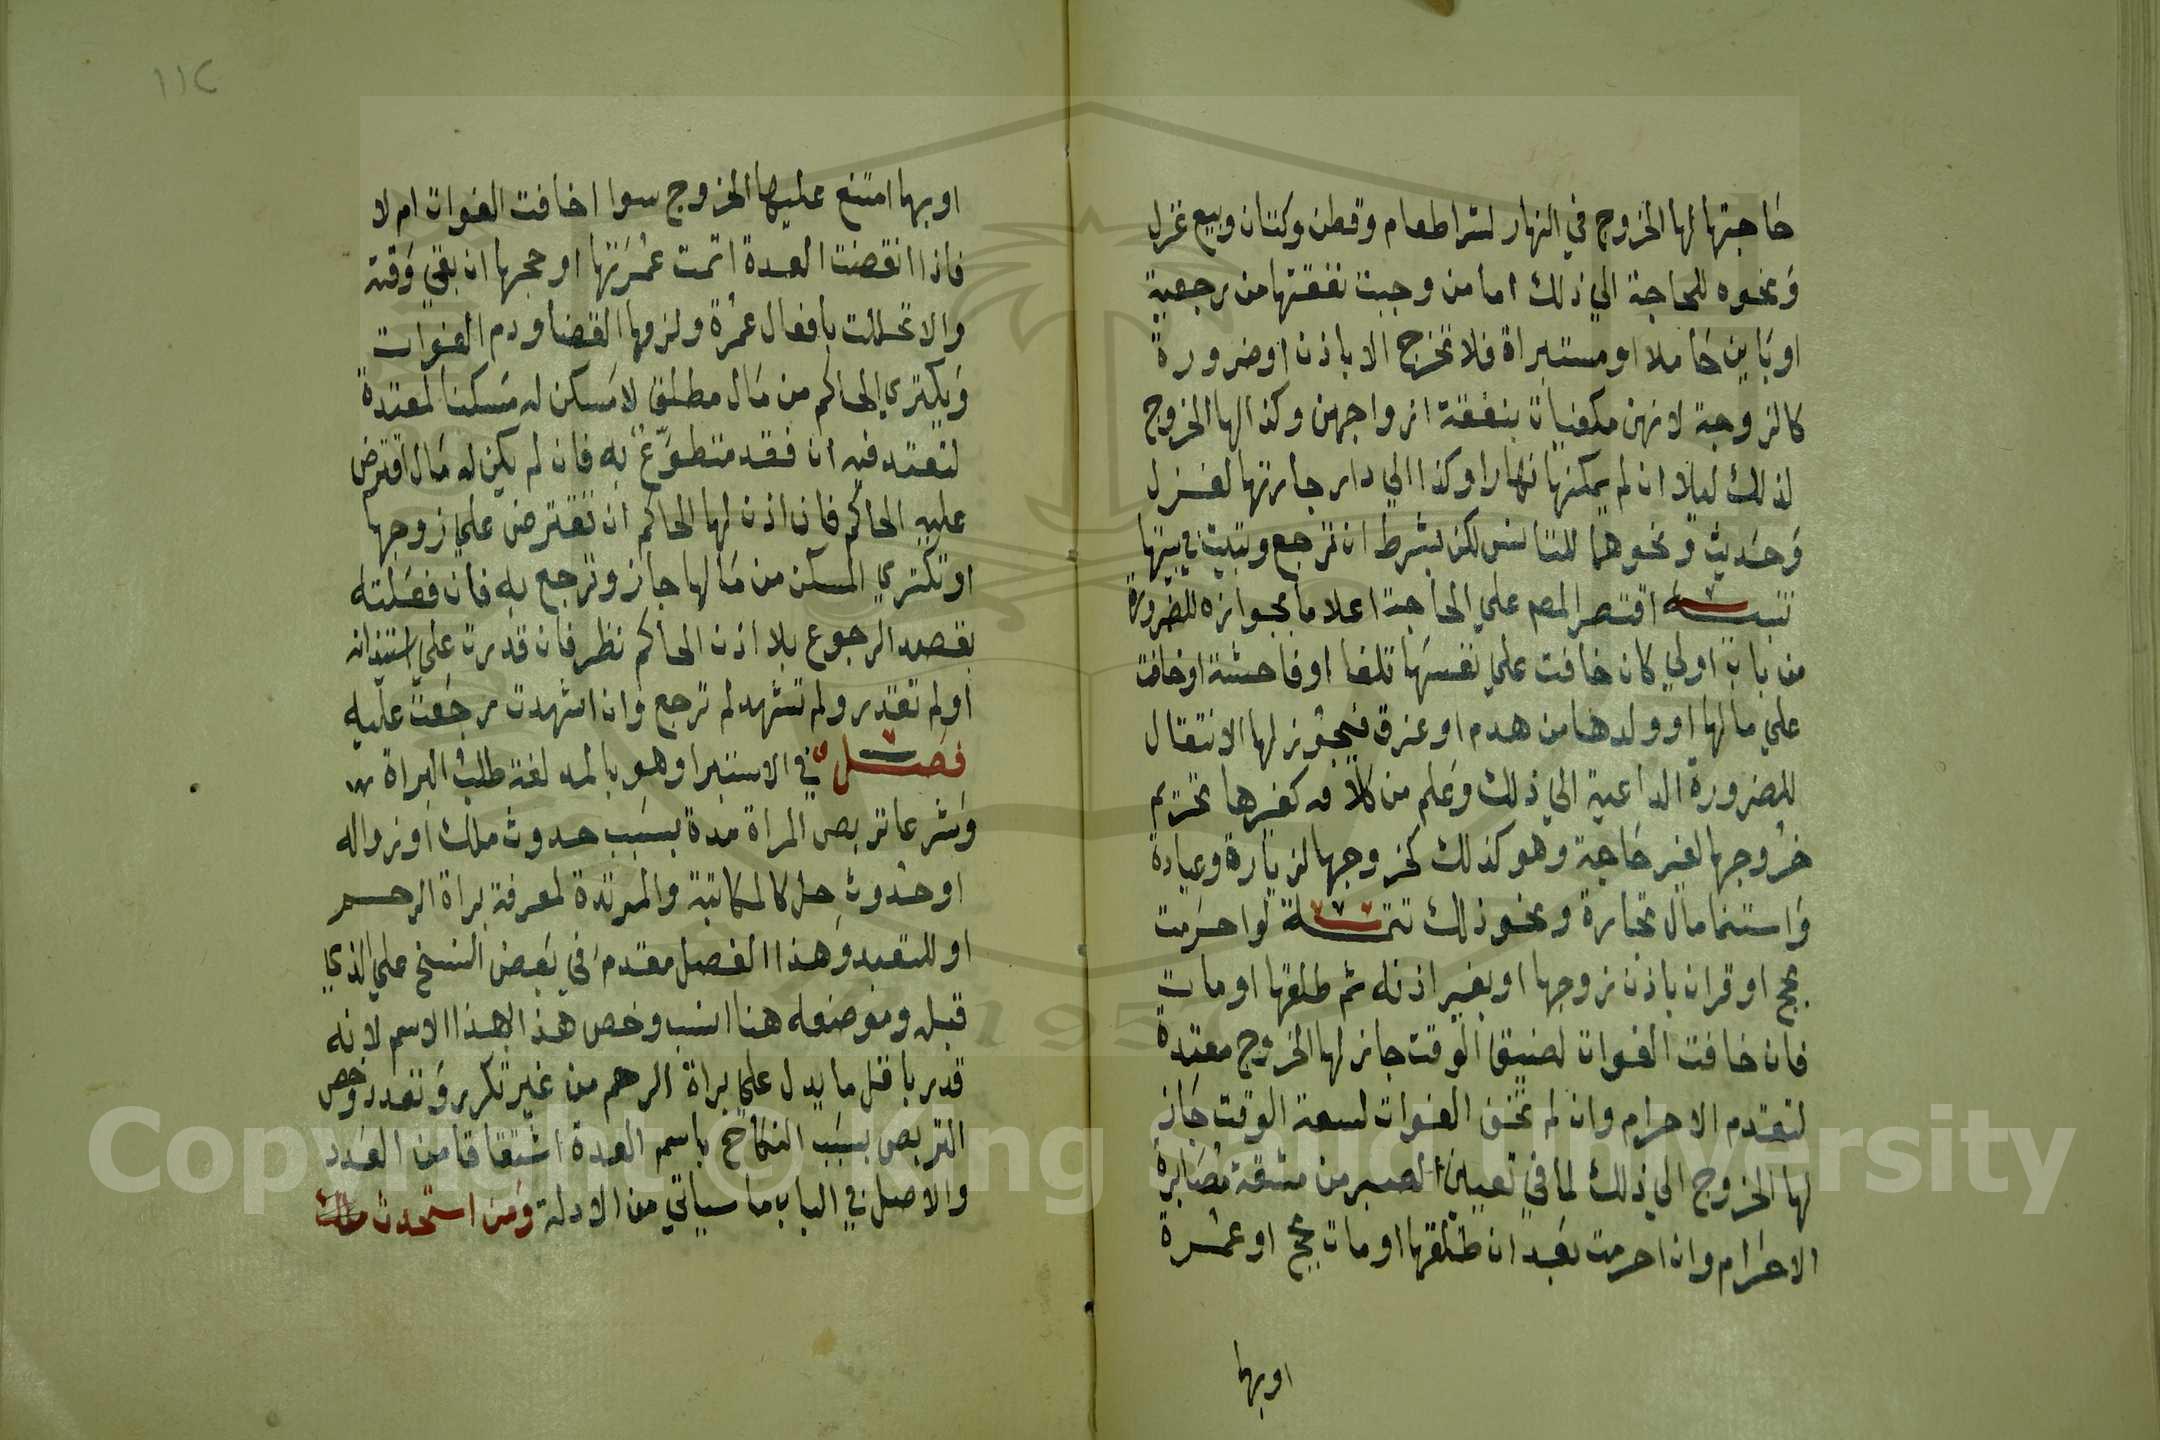 حاجتها لها الخروج في النهار لشرا طعام وقطن وكتان وبيع غزل
ونحوه للحاجة الي ذلك اما من وجبت نفقتها من رجعية
او باين حاملا او مستبراة فلا تخرج الا باذن او ضرورة
كالزوجة لانهن مكفيات بنفقة ازواجهن وكذا لها الخروج
لذلك ليلا ان لم يمكنها نهارا وكذا الي دار جارتها لغزل
وحديث ونحوهما للتانس لكن بشرط ان ترجع وتبيت في بيتها
تنبيه اقتصر المص علي الحاجة اعلاما بجوازه للضرورة
من باب اولي كان خافت علي نفسها تلفا او فاحشة او خافت
علي مالها او ولدها من هدم او غرق فيجوز لها الانتقال
للضرورة الداعية الي ذلك وعلم من كلامه كغيرها تحريم
خروجها لغير حاجة وهو كذلك كخروجها لزيارة وعيادة
واستنما مال تجارة ونحو ذلك تتمة لو احرمت
بحج او قران باذن زوجها او بغير اذنه ثم طلقها او مات
فان خافت الفوات لضيق الوقت جاز لها الخروج معتدة
لتقدم الاحرام وان لم تخف الفوات لسعة الوقت جاز
لها الخروج الي ذلك لما في تعيين الصبر من مشقة مصابرة
الاحرام وان احرمت بعد ان طلقها او مات بحج او عمرة
اوبها
١١٢
اوبها امتنع عليها الخروج سوا اخافت الفوات ام لا
فاذا انقضت العدة اتمت عمرتها او حجها ان بقي وقته
والا تحللت بافعال عمرة ولزمها القضا ودم الفوات
ويكتري الحاكم من مال مطلق لا مسكن له مسكنا لمعتدة
لتعتد فيه ان فقد متطوع به فان لم يكن له مال اقترض
عليه الحاكم فان اذن لها الحاكم ان تقترض علي زوجها
او تكتري المسكن من مالها جاز وترجع به فان فعلته
بقصد الرجوع بلا اذن الحاكم نظر فان قدرت علي استيذانه
او لم تقدر ولم تشهد لم ترجع وان اشهدت رجعت عليه
فصل في الاستبرا وهو بالمد لغة طلب البراة
وشرعا تربص المراة مدة بسبب حدوث ملك او زواله
او حدوث حل كالمكاتبة والمرتدة لمعرفة براة الرحم
او للتعبد وهذا الفصل مقدم في بعض النسخ علي الذي
قبله وموضعه هنا انسب وخص هذا بهذا الاسم لانه
قدر باقل ما يدل علي براة الرحم من غير تكرر وتعدد وخص
التربص بسبب النكاح باسم العدة اشتقاقا من العدد
والاصل في الباب ما سياتي من الادلة ومن استحدث ملك